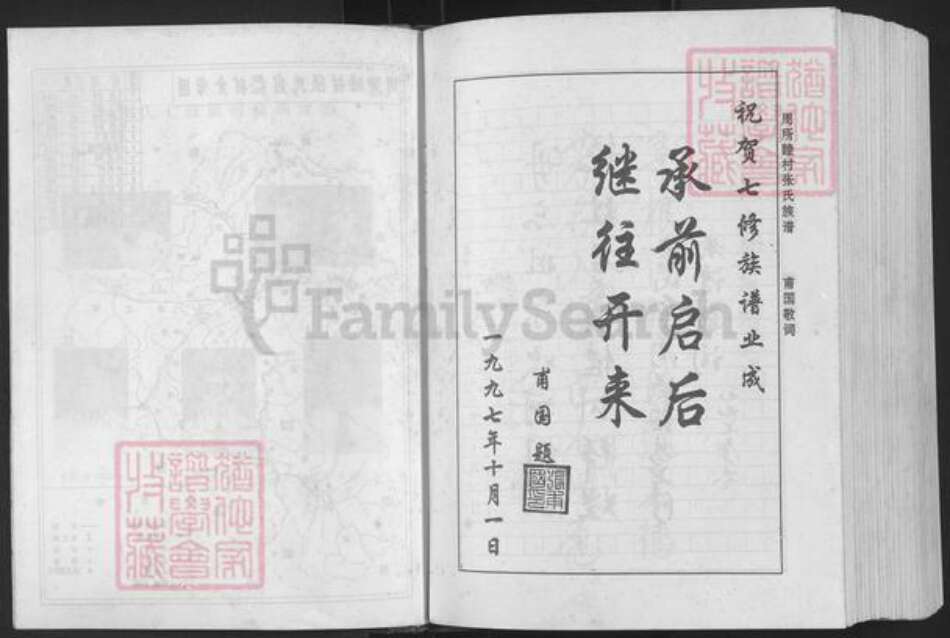 周所睦村张氏族谱 甫国敬词
祝贺七修族谱业成
承前启后
继往开来
甫国题
一九九七年十月一日
譜學會
收藏
FamilySearch
譜學會
收藏